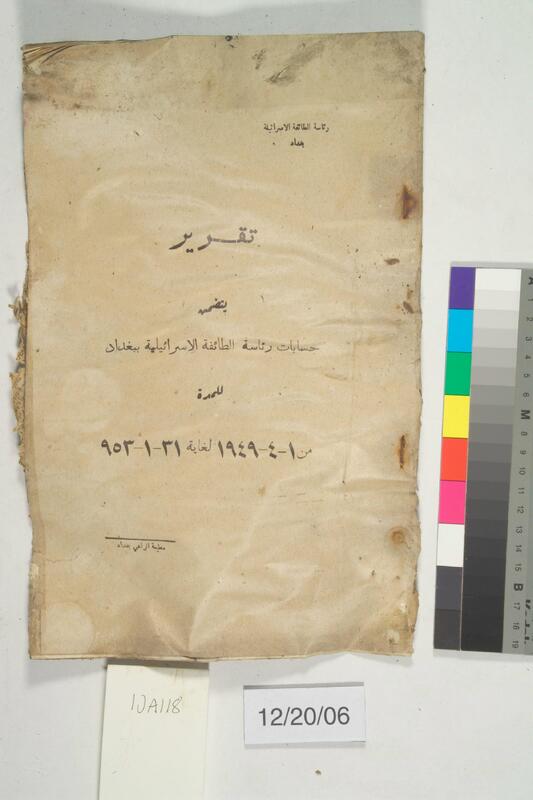 رئاسة الطائفة الاسرائيلية
بغداد
تقرير
يتضمن
حسابات رئاسة الطائفة الاسرائيلية ببغداد
للمدة
من ١-٤-١٩٤٩ لغاية ٣١-١-٩٥٣
مطبعة الراعي بغداد
IJA118
12/20/06
M
8
9
10
11
12
13
14
15
B
17
18
19